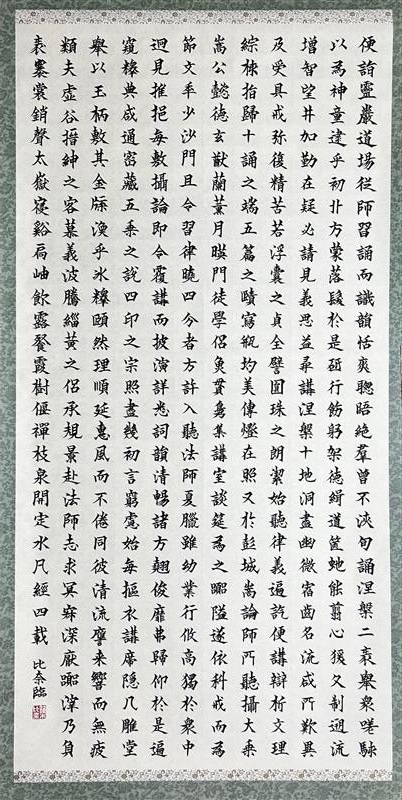 便詣靈巖道場從師習誦而識韻恬爽聰晤絕群曾不浹旬誦涅槃二袠舉衆嗟駭
以為神童逮乎初丱方蒙落髮於是砥行飭躬架德緝道篋虵能翦心猨久制週流
增智望井加勤在疑必請見義思益尋講涅槃十地洞盡幽微宿齒名流咸所歎異
及受具戒弥復精苦若浮囊之貞全譬圓珠之朗潔始聽律義遍訖便講辯析文理
綜核指歸十誦之端五篇之賾寫瓶均美傳燈在照又於彭城嵩論師所聽攝大乘
嵩公懿德玄猷蘭薰月暎門徒學侶魚貫鳧集講室談筵為之嚻隘遂依科戒而為
節文年少沙門且令習律曉四分者方許入聽法師夏臘雖幼業行攸高獨於衆中
迥見推挹每敷攝論即令覆講而披演詳悉詞韻清暢諸方翹俊靡弗歸仰於是遍
窺釋典咸通密藏五乘之說四印之宗照盡幾初言窮慮始每摳衣講席隱几雕堂
舉以玉柄敷其金牒渙乎冰釋頤然理順延惠風而不倦同彼清流譬来響而無疲
類夫虛谷搢紳之客慕義波騰緇黃之侶承規景赴法師志求冥寂深厭嚻滓乃負
袠褰裳銷聲太嶽寑谿扃岫飲露餐霞樹偃禪枝泉開定水凡經四載 比奈臨